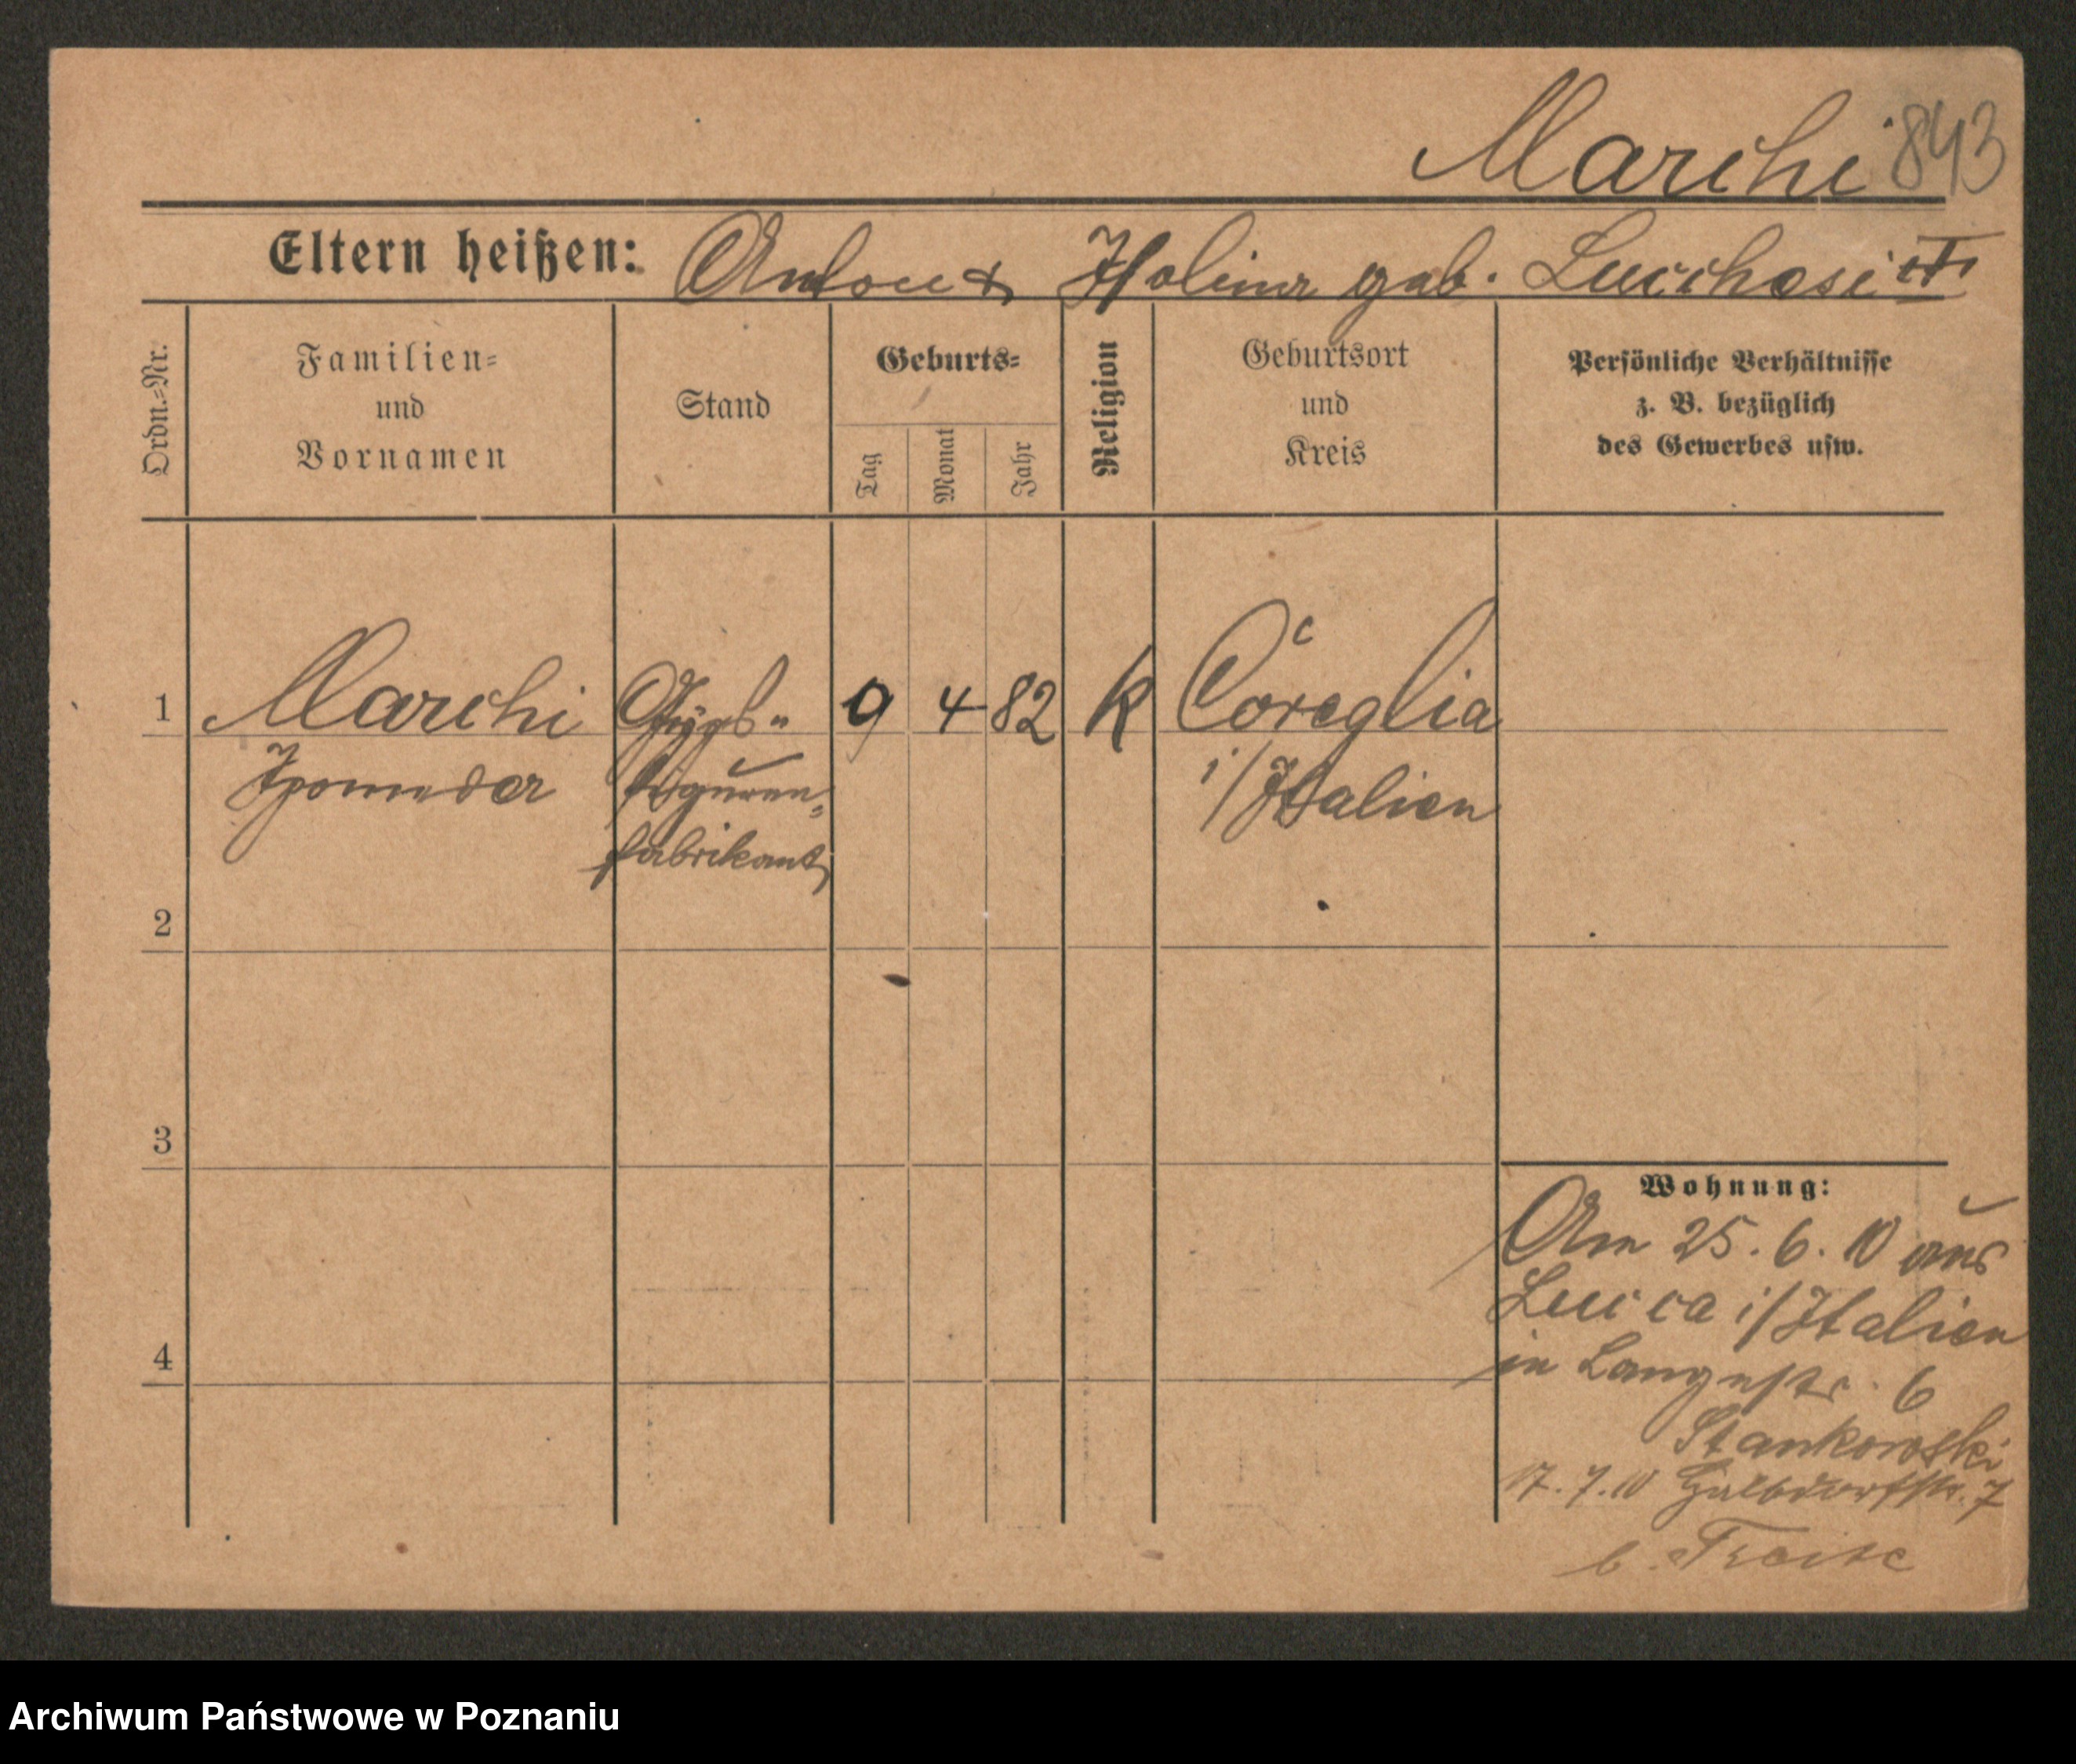 Marchi 843
Eltern heißen: Anton & Holina geb. Lucchesi
Ordn.-Nr.
Familien-
und
Vornamen
Stand
Geburts-
Tag
Monat
Jahr
Religion
Geburtsort
und
Kreis
Persönliche Verhältnisse
z. B. bezüglich
des Gewerbes usw.
1 Marchi Gyps- 9 4 82 K Coreglia
figuren- i/Italien
fabrikant
2
3
4
Wohnung:
Am 25. 6. 10 aus
Lucca i/Italien
in Langestr. 6
Stankowski
17. 7. 10 Halbdorfstr. 7
b.
Archiwum Państwowe w Poznaniu